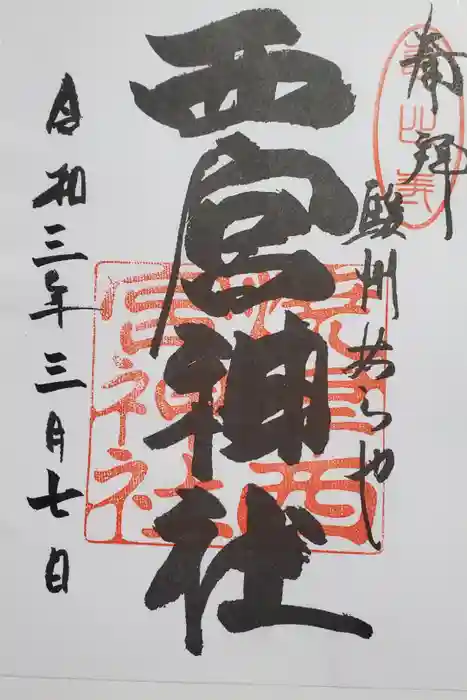 奉拝
駿州あらや
西宮神社
令和三年三月七日
焼津西
宮神社